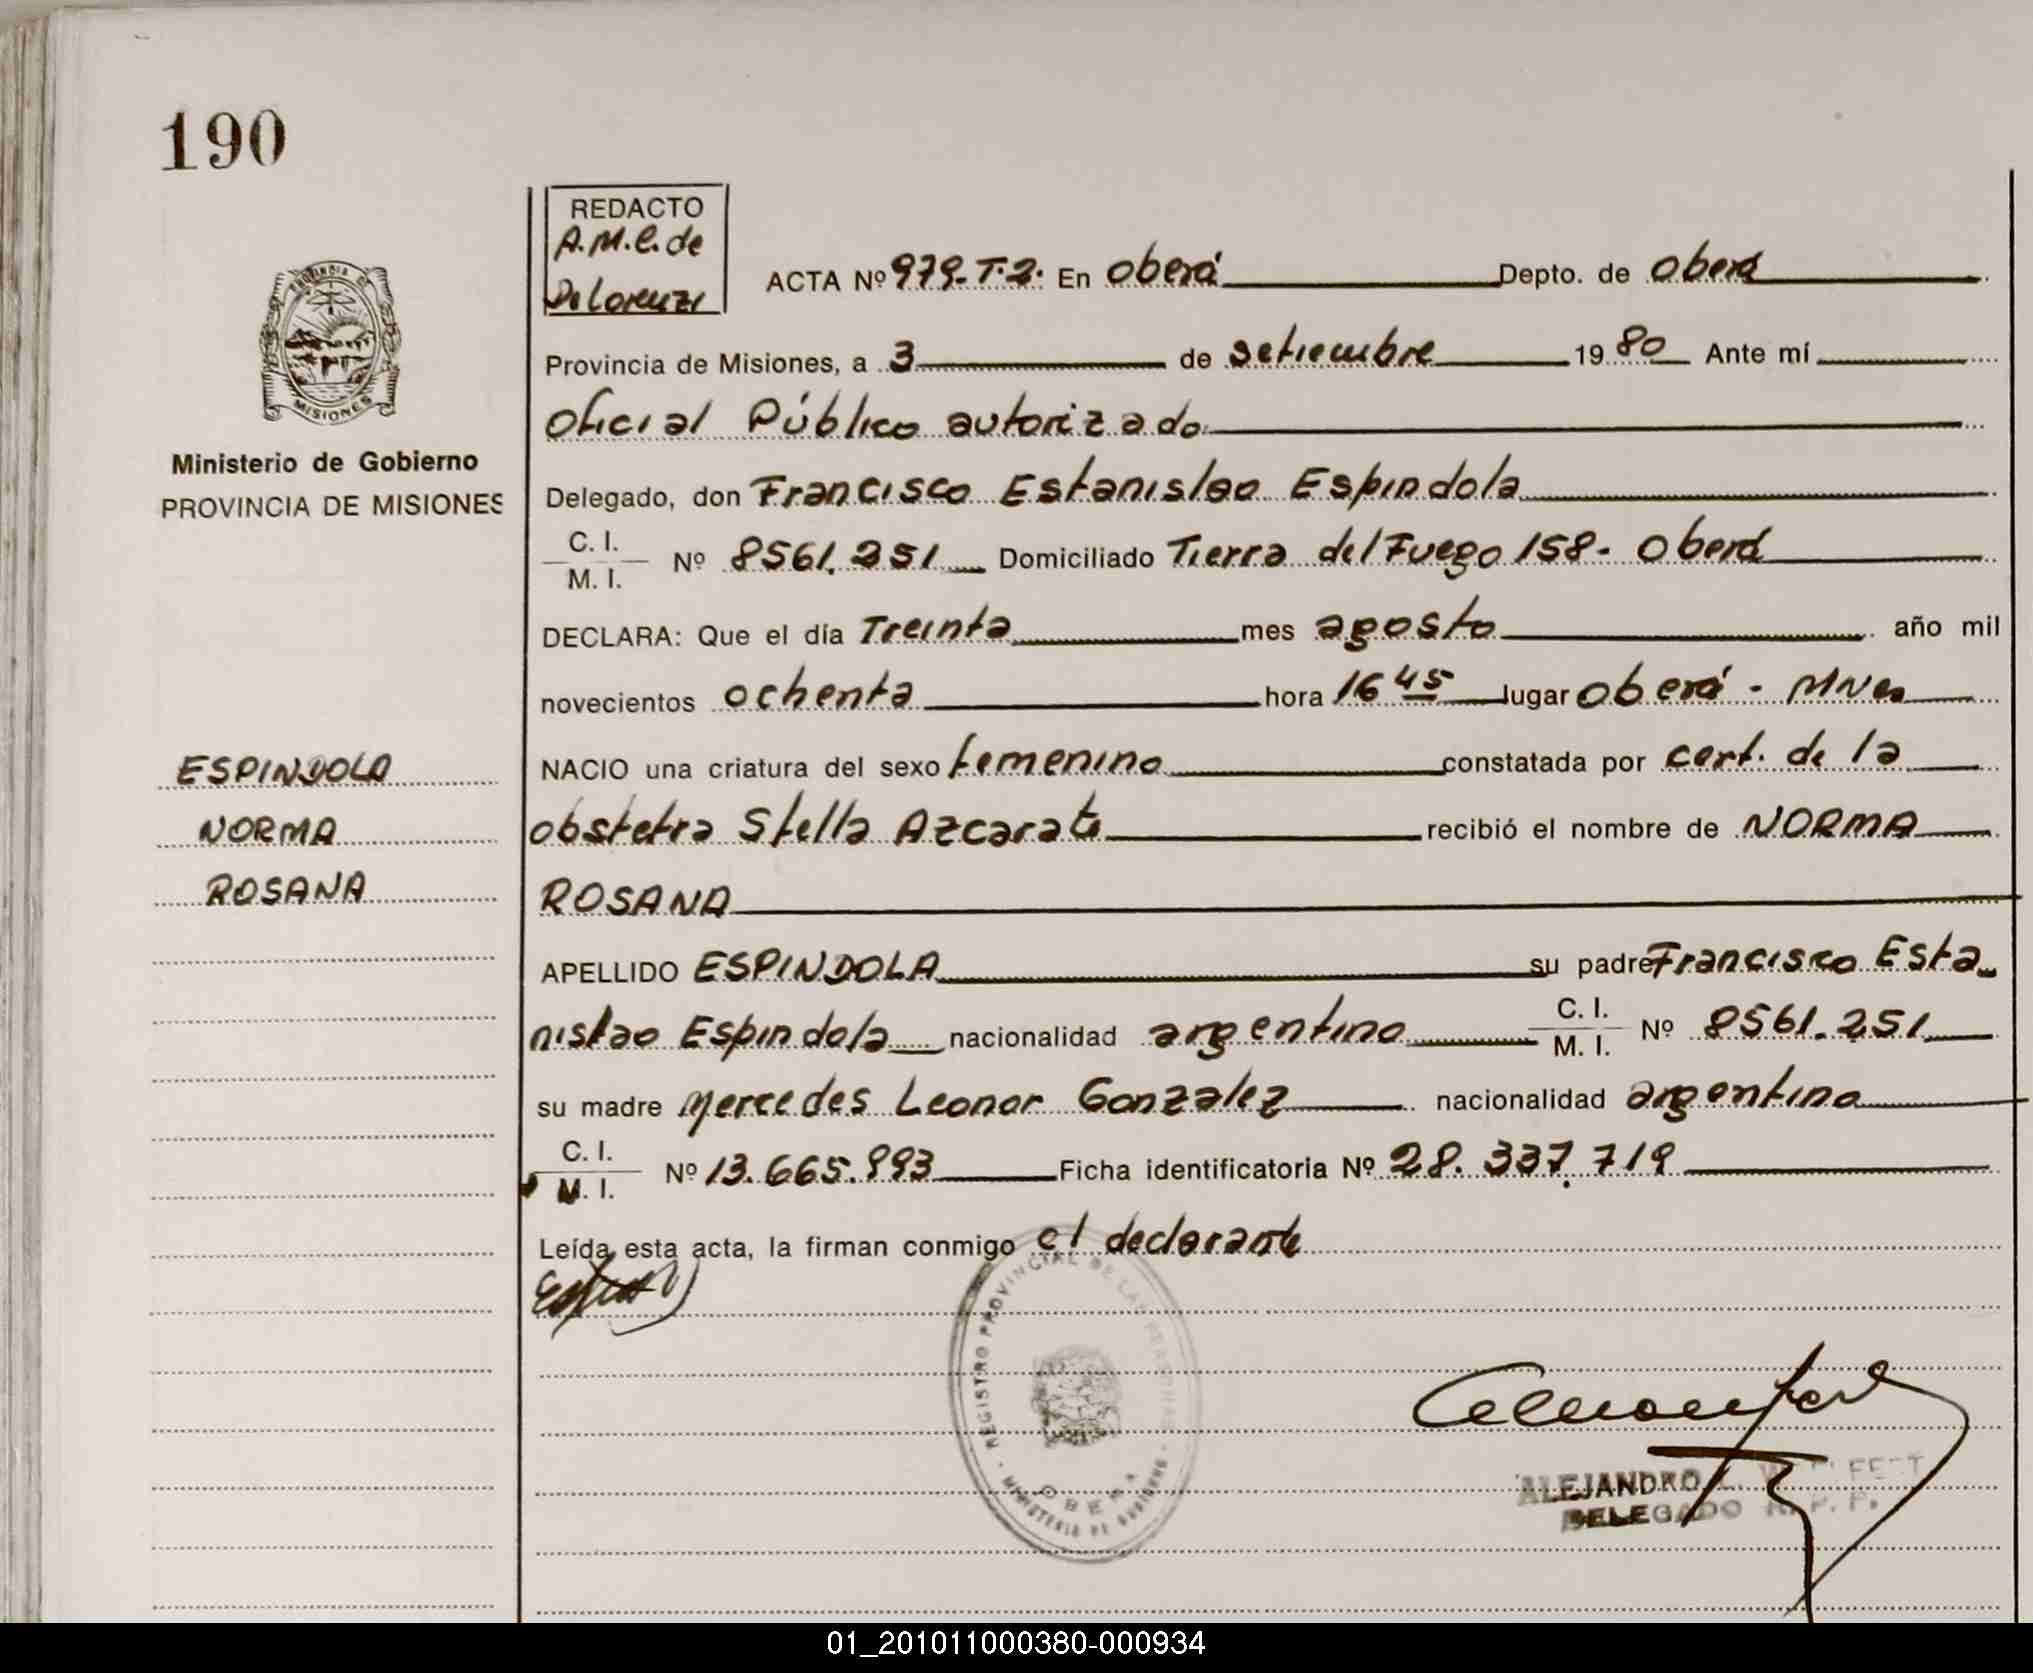 190
REDACTO
A.M.C. de
De Lorenzi
ACTA Nº 979-T.2. En Oberá Depto. de Oberá
Provincia de Misiones, a 3 de setiembre 1980 Ante mí
Oficial Público autorizado
Delegado, don Francisco Estanislao Espindola
C. I.
M. I. Nº 8561.251 Domiciliado Tierra del Fuego 158- Oberá
DECLARA: Que el día Treinta mes agosto año mil
novecientos ochenta hora 16 45 lugar Oberá - Mnes
NACIO una criatura del sexo femenino constatada por cert. de la
obstetra Stella Azcarate recibió el nombre de NORMA
ROSANA
APELLIDO ESPINDOLA su padre Francisco Esta
nislao Espindola nacionalidad argentino C. I.
M. I. Nº 8561.251
su madre Mercedes Leonor Gonzalez nacionalidad argentina
C. I.
M. I. Nº 13.665.993 Ficha identificatoria Nº 28.337.719
Leída esta acta, la firman conmigo el declarante
PROVINCIA DE
MISIONES
Ministerio de Gobierno
PROVINCIA DE MISIONES
ESPINDOLA
NORMA
ROSANA
REGISTRO PROVINCIAL DE LAS PERSONAS
OBERA
MINISTERIO DE GOBIERNO
ALEJANDRO
DELEGADO R. P. P.
01_201011000380-000934